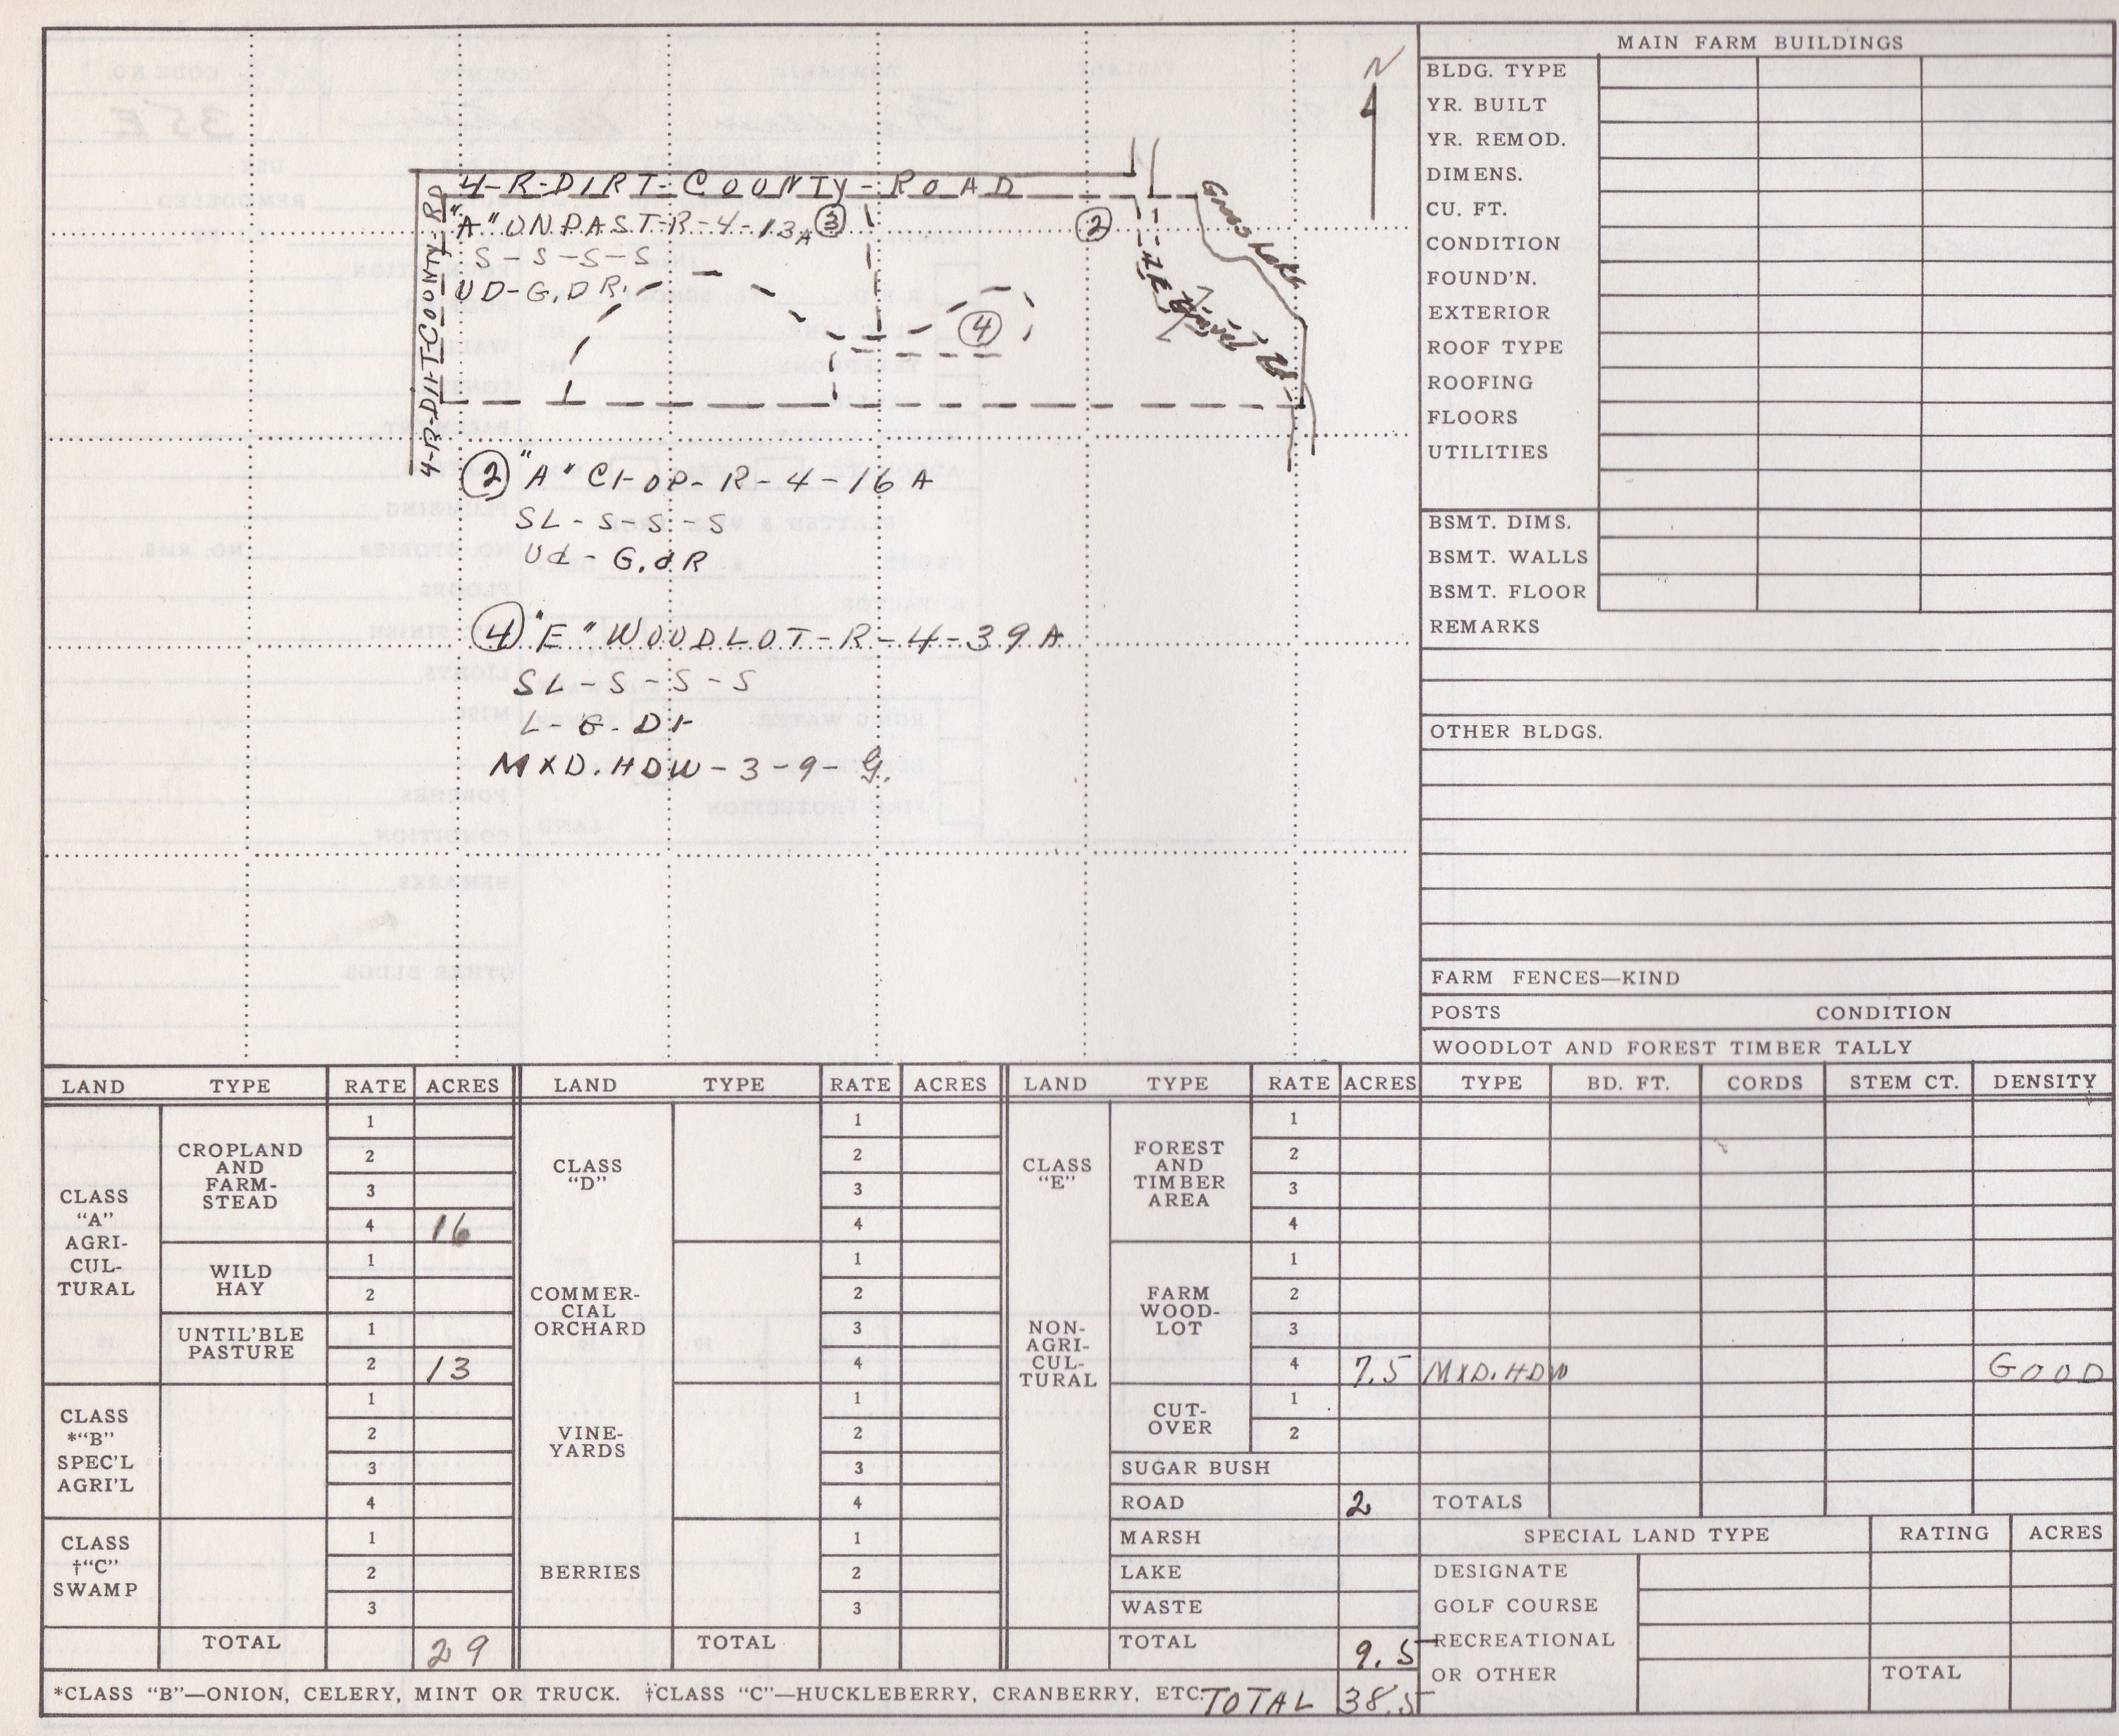 N
4-R-DIRT-COUNTY-ROAD
4-R-DIRT-COUNTY-RD
"A" UN.PAST-R-4-13A ③
S-S-S-S
UD-G.DR.
②
④
② "A" Cr-OP-R-4-16 A
SL-S-S-S
Ud-G.dR
④ "E" WOODLOT-R-4-39 A
SL-S-S-S
L-G-Dr
MXD.HDW-3-9-G.
MAIN FARM BUILDINGS
BLDG. TYPE
YR. BUILT
YR. REMOD.
DIMENS.
CU. FT.
CONDITION
FOUND'N.
EXTERIOR
ROOF TYPE
ROOFING
FLOORS
UTILITIES
BSMT. DIMS.
BSMT. WALLS
BSMT. FLOOR
REMARKS
OTHER BLDGS.
FARM FENCES—KIND
POSTS CONDITION
WOODLOT AND FOREST TIMBER TALLY
LAND TYPE RATE ACRES LAND TYPE RATE ACRES LAND TYPE RATE ACRES TYPE BD. FT. CORDS STEM CT. DENSITY
CLASS
"A"
AGRI-
CUL-
TURAL
CROPLAND
AND
FARM-
STEAD
1
2
3
4 16
WILD
HAY
1
2
UNTIL'BLE
PASTURE
1
2 13
CLASS
*"B"
SPEC'L
AGRI'L
1
2
3
4
CLASS
†"C"
SWAMP
1
2
3
TOTAL 29
CLASS
"D"
1
2
3
4
COMMER-
CIAL
ORCHARD
1
2
3
4
VINE-
YARDS
1
2
3
4
BERRIES
1
2
3
TOTAL
CLASS
"E"
NON-
AGRI-
CUL-
TURAL
FOREST
AND
TIMBER
AREA
1
2
3
4
FARM
WOOD-
LOT
1
2
3
4 7.5 MXD.HDW GOOD
CUT-
OVER
1
2
SUGAR BUSH
ROAD 2 TOTALS
MARSH
LAKE
WASTE
TOTAL 9.5
SPECIAL LAND TYPE RATING ACRES
DESIGNATE
GOLF COURSE
RECREATIONAL
OR OTHER TOTAL
*CLASS "B"—ONION, CELERY, MINT OR TRUCK. †CLASS "C"—HUCKLEBERRY, CRANBERRY, ETC. TOTAL 38.5